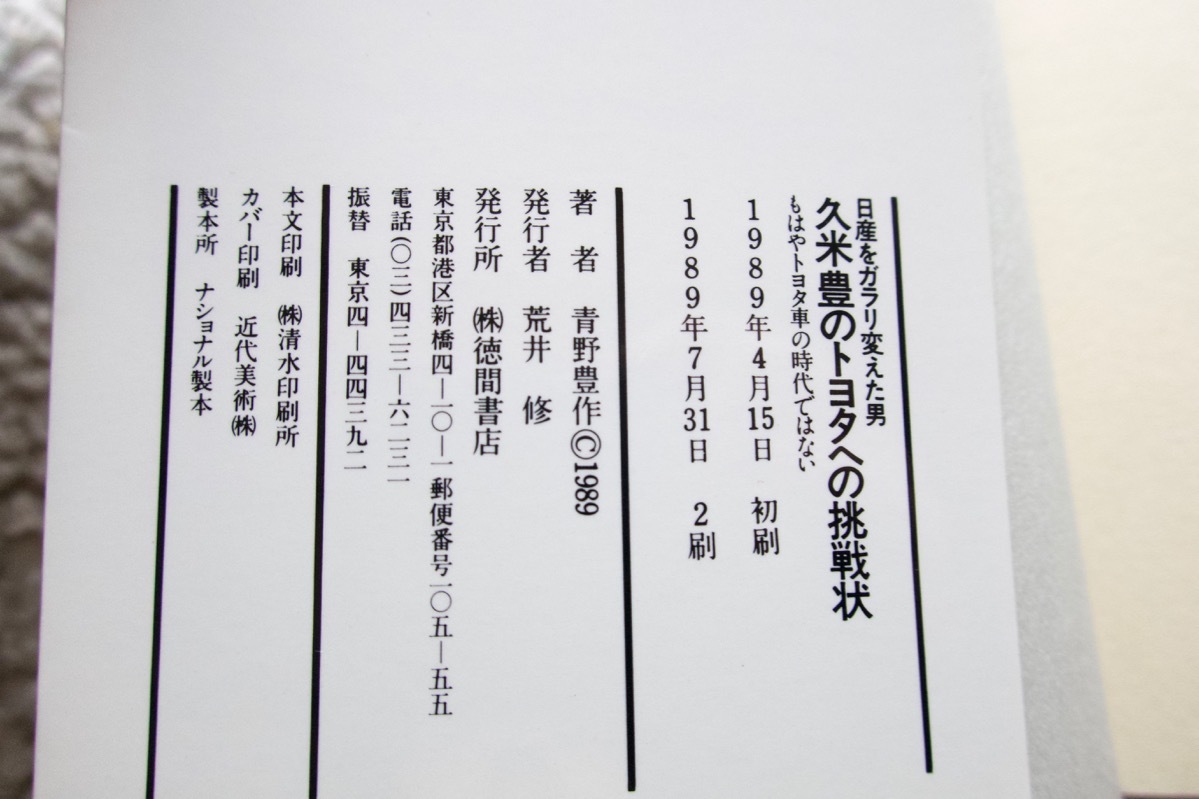 日産をガラリ変えた男
久米豊のトヨタへの挑戦状
もはやトヨタ車の時代ではない
1989年4月15日　初刷
1989年7月31日　2刷
著　者　青野豊作©1989
発行者　荒井　修
発行所　㈱徳間書店
東京都港区新橋四—一〇—一 郵便番号一〇五—五五
電話(〇三)四三三—六二三一
振替　東京四—四四三九二
本文印刷　㈱清水印刷所
カバー印刷　近代美術㈱
製本所　ナショナル製本